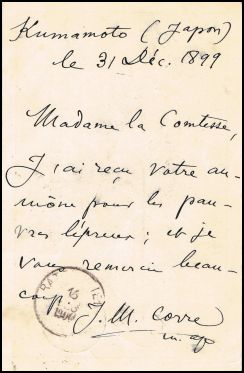 Kumamoto (Japon)
le 31 Déc. 1899
Madame la Comtesse,
J'ai reçu votre au-
mône pour les pau-
vres lépreux ; et je
vous remercie beau-
coup. J. M. Corre
m. ap
16
1900